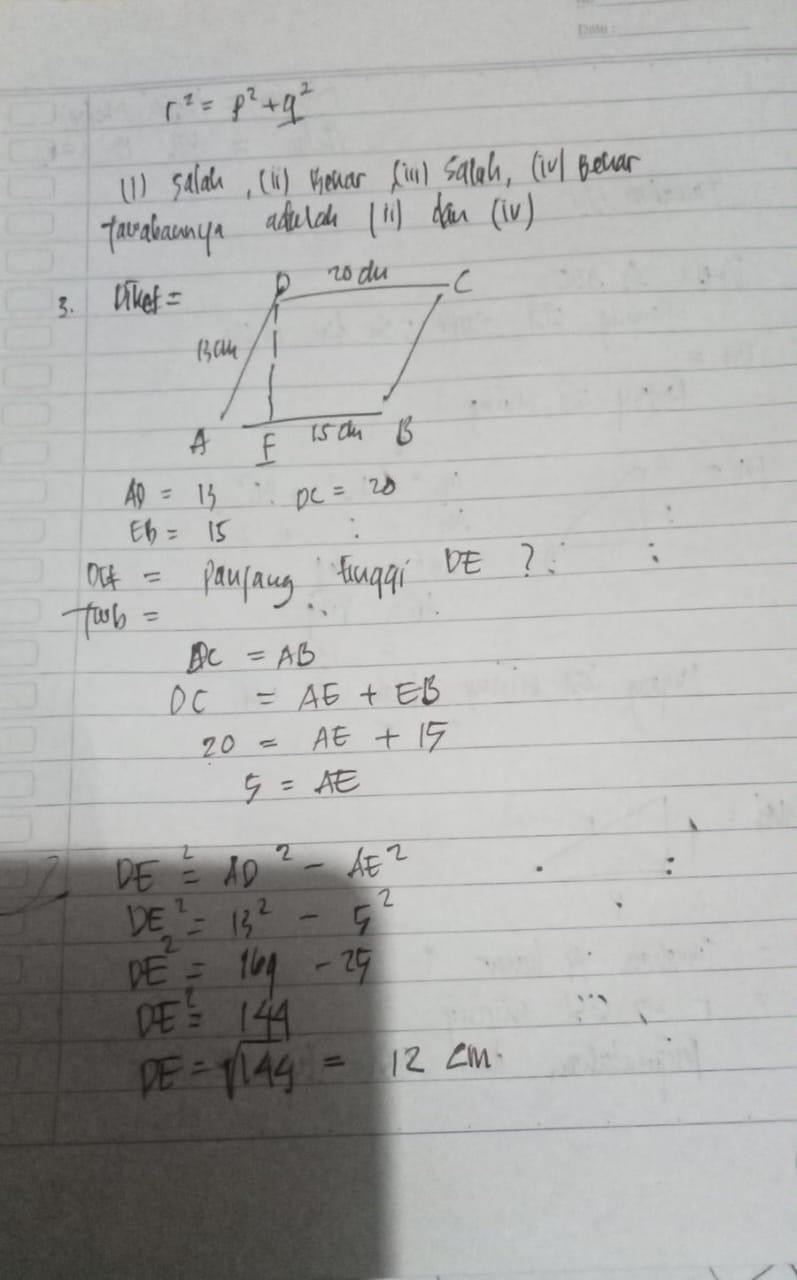 Date :
r² = p² + q²
(i) salah, (ii) Benar (iii) Salah, (iv) Benar
Jawabannya adalah (ii) dan (iv)
3. Diket =
D 20 cm C
13 cm
A E 15 cm B
AD = 13 DC = 20
EB = 15
Dit = Panjang tinggi DE ?
Jwb =
DC = AB
DC = AE + EB
20 = AE + 15
5 = AE
DE² = AD² - AE²
DE² = 13² - 5²
DE² = 169 - 25
DE² = 144
DE = √144 = 12 cm.